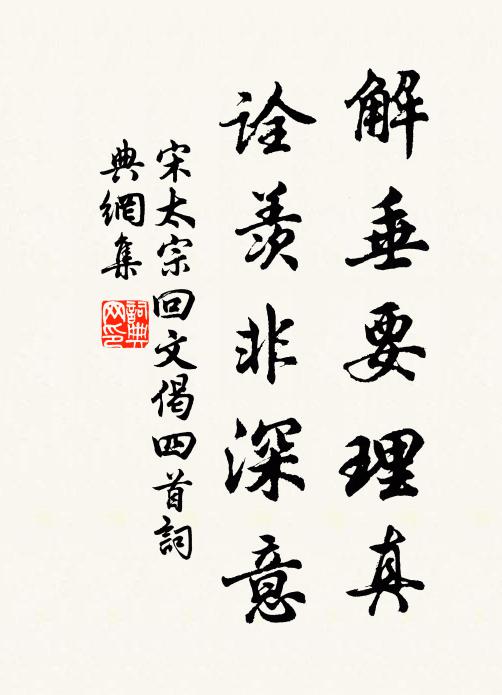 解垂要理真
詮羨非深意
宋太宗回文偈四首詞
典網集
詞典
網印